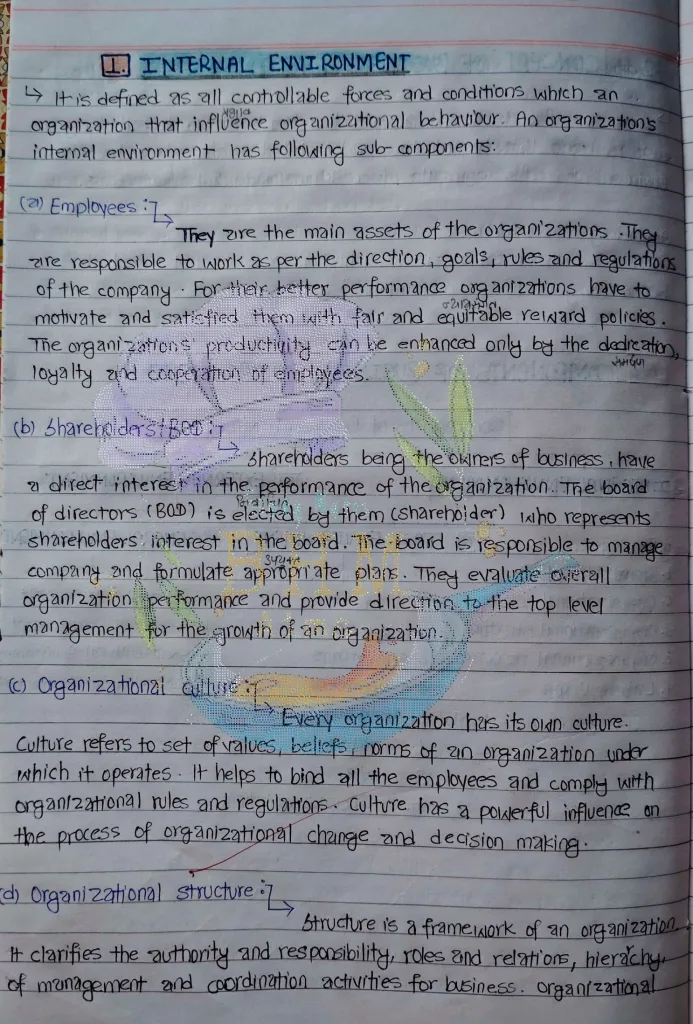 1. INTERNAL ENVIRONMENT
↳ It is defined as all controllable forces and conditions which an
organization that influence organizational behaviour. An organization's
internal environment has following sub-components:
(a) Employees :
They are the main assets of the organizations. They
are responsible to work as per the direction, goals, rules and regulations
of the company. For their better performance organizations have to
motivate and satisfied them with fair and equitable reward policies.
The organizations' productivity can be enhanced only by the dedication,
समर्पण
loyalty and cooperation of employees.
(b) Shareholders+BOD :
Shareholders being the owners of business, have
a direct interest in the performance of the organization. The board
of directors (BOD) is elected by them (shareholder) who represents
shareholders interest in the board. The board is responsible to manage
उपयुक्त
company and formulate appropriate plans. They evaluate overall
organization performance and provide direction to the top level
management for the growth of an organization.
(c) Organizational culture :
Every organization has its own culture.
Culture refers to set of values, beliefs, norms of an organization under
which it operates. It helps to bind all the employees and comply with
organizational rules and regulations. Culture has a powerful influence on
the process of organizational change and decision making.
(d) Organizational structure :
Structure is a framework of an organization.
It clarifies the authority and responsibility, roles and relations, hierachy
of management and coordination activities for business. Organizational